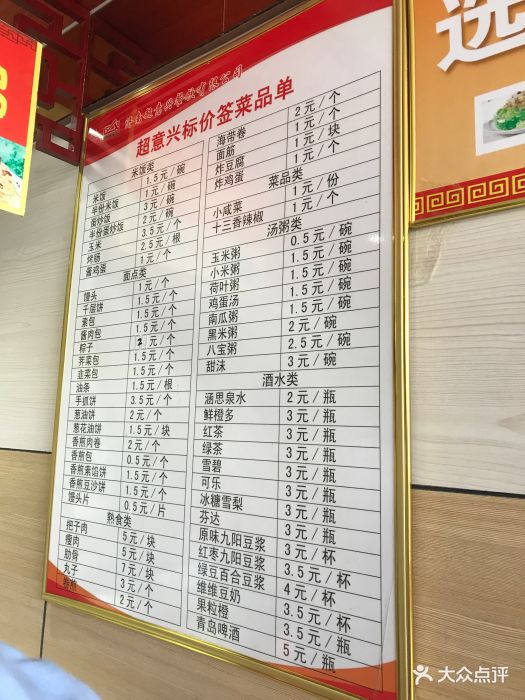 济南超意兴餐饮有限公司
超意兴标价签菜品单
米饭类
米饭 1.5元/碗
半份米饭 1元/碗
蛋炒饭 3元/碗
半份蛋炒饭 2元/碗
玉米 3.5元/个
烤肠 2.5元/根
酱鸡蛋 1元/个
面点类
馒头 1元/个
千层饼 1.5元/个
素包 1.5元/个
酱肉包 1.5元/个
粽子 2元/个
荠菜包 1.5元/个
韭菜包 1.5元/个
油条 1.5元/根
手抓饼 3.5元/个
葱油饼 2元/个
葱花油饼 1.5元/块
香煎肉卷 2元/个
香煎包 0.5元/个
香煎素馅饼 1.5元/个
香煎豆沙饼 1.5元/个
馒头片 0.5元/片
熟食类
把子肉 5元/块
瘦肉 5元/块
肋骨 7元/块
丸子 3元/个
2元/个
海带卷 2元/个
面筋 1元/个
炸豆腐 1元/块
炸鸡蛋 1元/个
菜品类
小咸菜 1元/份
十三香辣椒 1元/个
汤粥类
玉米粥 0.5元/碗
小米粥 1.5元/碗
荷叶粥 1.5元/碗
鸡蛋汤 1.5元/碗
南瓜粥 1.5元/碗
黑米粥 2元/碗
八宝粥 2.5元/碗
甜沫 3元/碗
酒水类
涵思泉水 2元/瓶
鲜橙多 3元/瓶
红茶 3元/瓶
绿茶 3元/瓶
雪碧 3元/瓶
可乐 3元/瓶
冰糖雪梨 3元/瓶
芬达 3元/瓶
原味九阳豆浆 3元/杯
红枣九阳豆浆 3.5元/杯
绿豆百合豆浆 4元/杯
维维豆奶 3.5元/瓶
果粒橙 3.5元/瓶
青岛啤酒 5元/瓶
选
大众点评